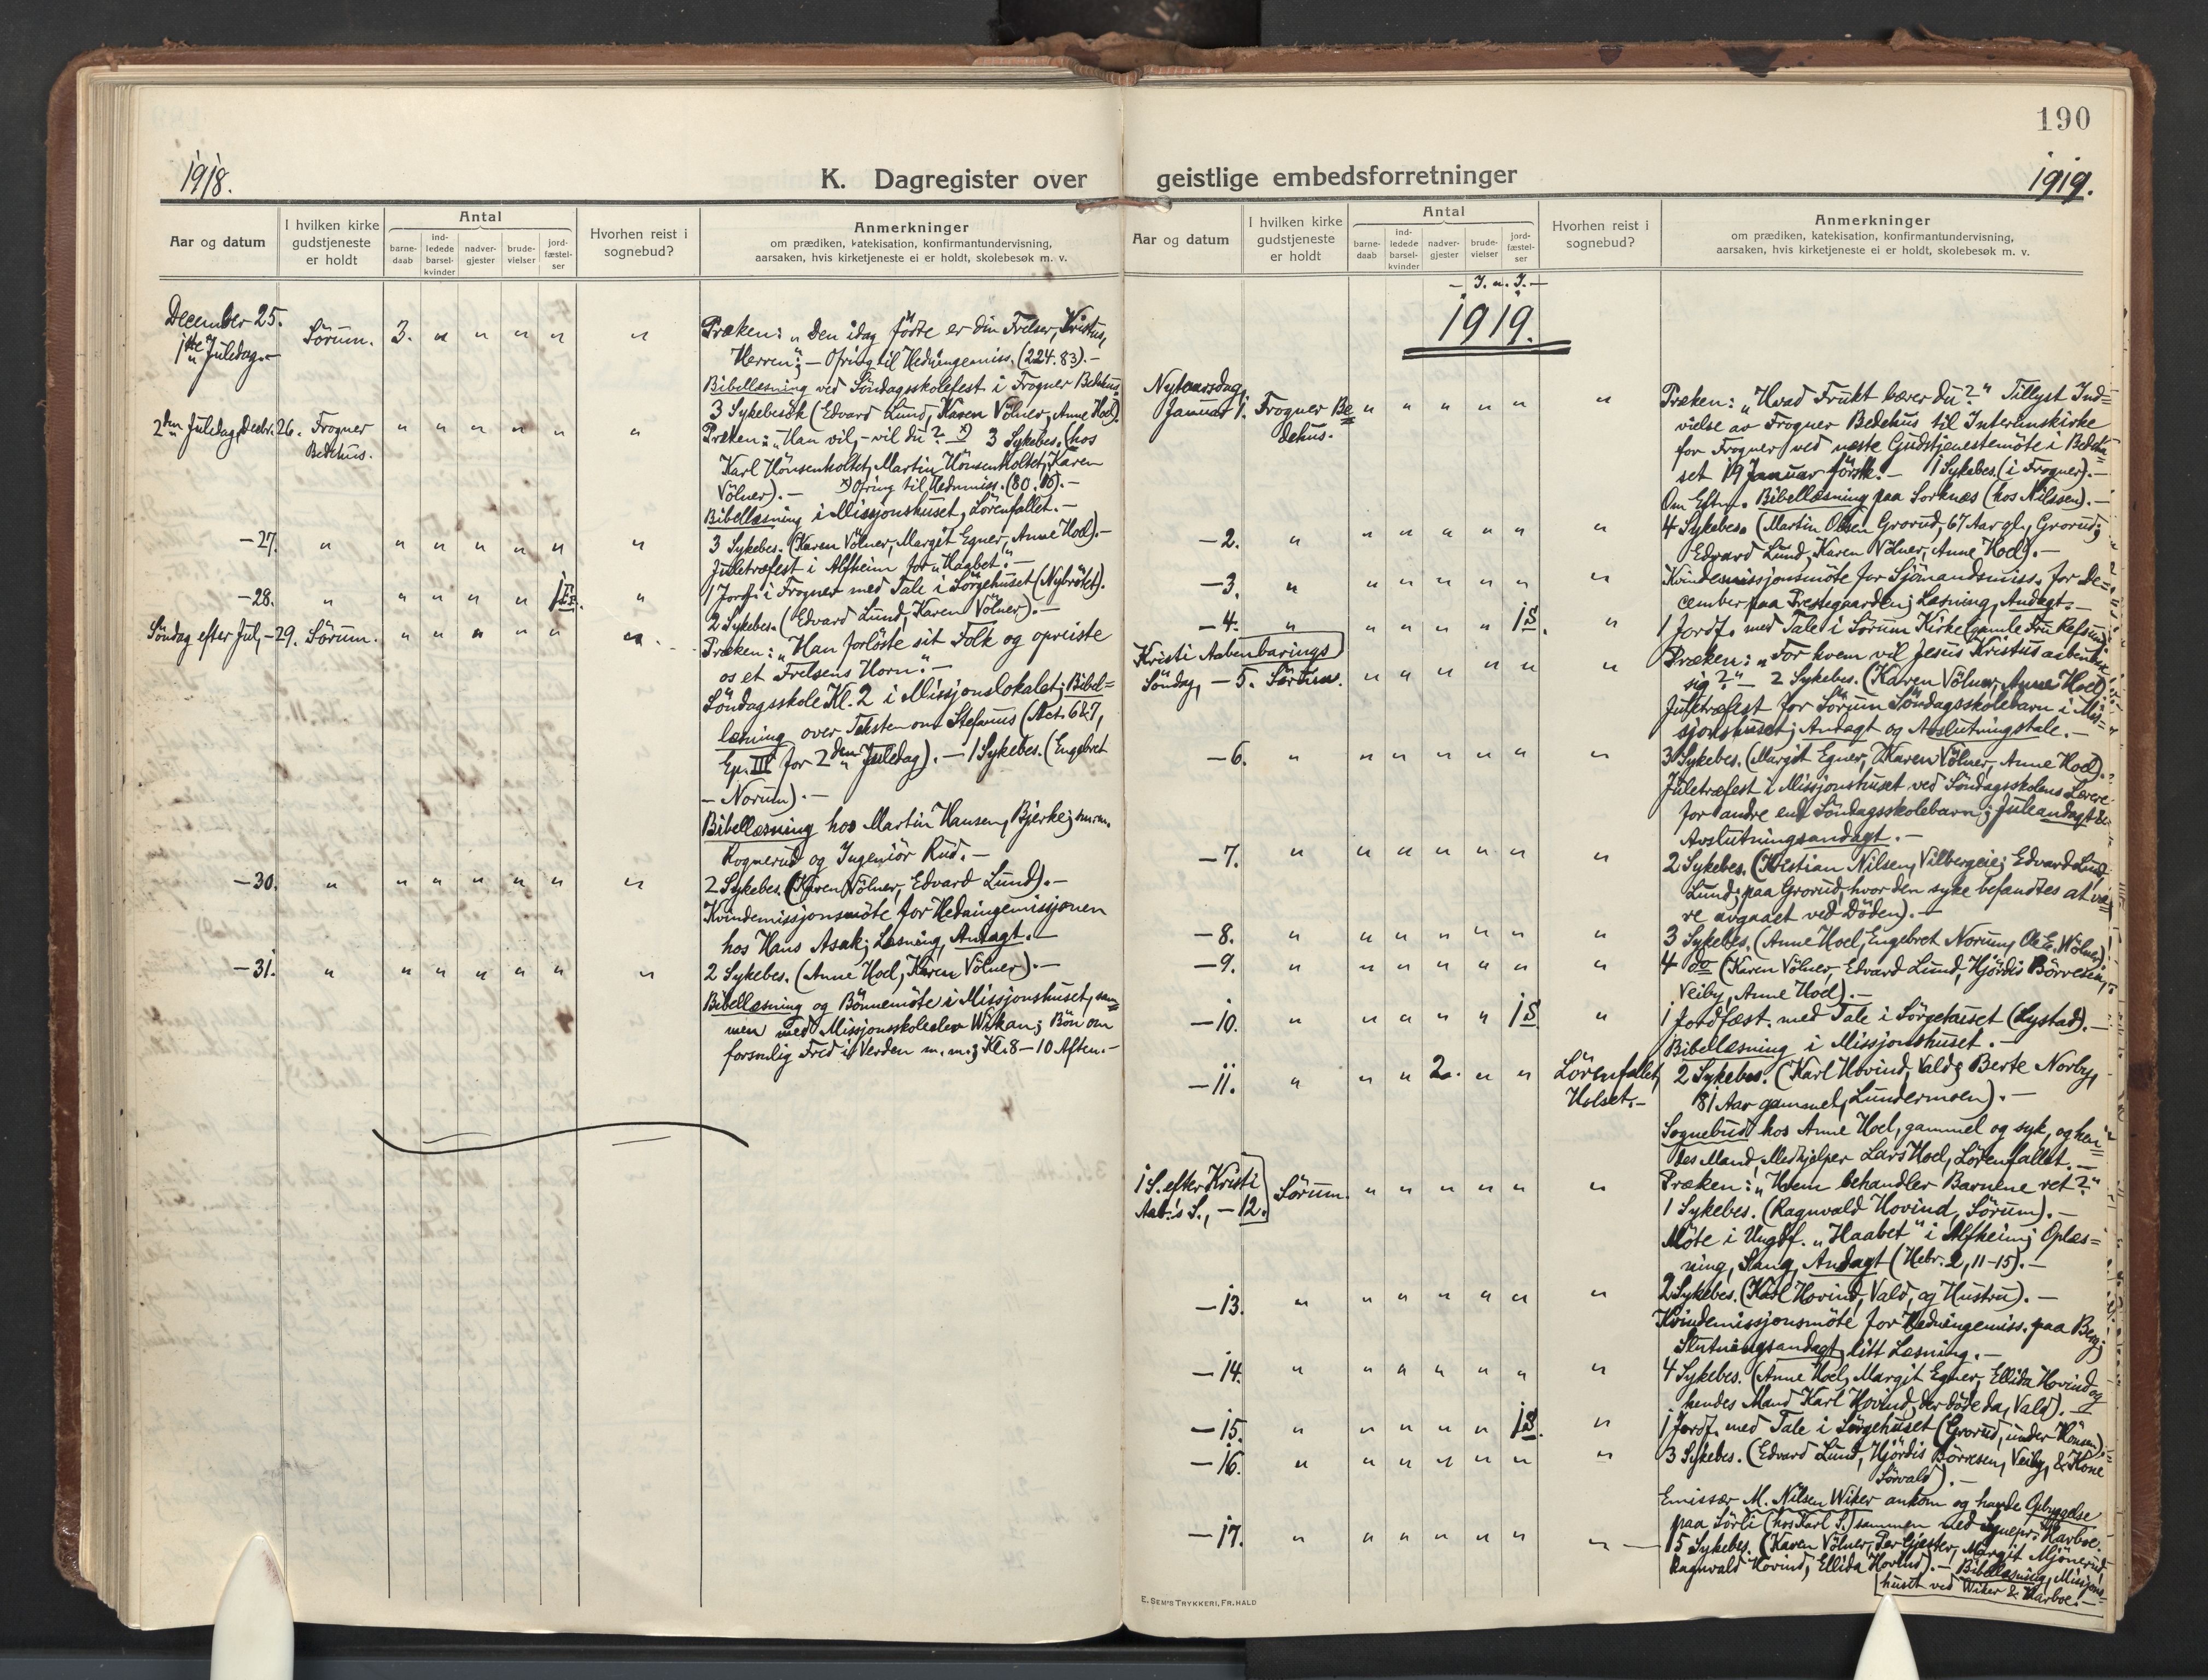 190
1918.
K. Dagregister over
Aar og datum
I hvilken kirke gudstjeneste er holdt
Antal
barne-daab
ind-ledede barsel-kvinder
nadver-gjester
brude-vielser
jord-fæstel-ser
Hvorhen reist i sognebud?
Anmerkninger
om prædiken, katekisation, konfirmantundervisning,
aarsaken, hvis kirketjeneste ei er holdt, skolebesøk m. v.
December 25.
1ste Juledag.-
Sörum. 3. " " " " "
Præken: "Den idag födte er din Frelser, Kristus,
Herren". - Ofring til Hedningemiss. (224.83).-
Bibellæsning ved Söndagsskolefest i Frogner Bedehus.
3 Sykebesök (Edvard Lund, Karen Völner, Anne Hoel).
2den Juledag, Decbr. 26. Frogner Bedehus. " " " " " "
Præken: "Han vil, - vil du?" x) 3 Sykebes. (hos
Karl Hönsenholtet, Martin Hönsenholtet, Karen
Völner). - x) Ofring til Hednmiss. (80.16).-
Bibellæsning i Missjonshuset, Lörenfallet.-
-27. " " " " " " "
3 Sykebes. (Karen Völner, Margit Egner, Anne Hoel).-
Juletræfest i Alfheim for "Haabet".-
-28. " " " " " 1 Fr. "
1 Jordf. i Frogner med Tale i Sörgehuset (Nybrötet).
2 Sykebes. (Edvard Lund, Karen Völner).-
Söndag efter Jul, -29. Sörum. " " " " " "
Præken: "Han forlöste sit Folk og opreiste
os et Frelsens Horn".-
Söndagsskole Kl. 2 i Missjonslokalet; Bibel=
læsning over Teksten om Stefanus (Act. 6&7,
Ep. III for 2den Juledag). - 1 Sykebes. (Engebret
- Norum).-
Bibellæsning hos Martin Hansen, Bjerke;
Rognerud og Ingeniör Rud.-
-30. " " " " " " "
2 Sykebes. (Karen Völner, Edvard Lund).-
Kvindemissjonsmöte for Hedningemissjonen
hos Hans Asak; Læsning, Andagt.-
-31. " " " " " " "
2 Sykebes. (Anne Hoel, Karen Völner).-
Bibellæsning og Bönnemöte i Missjonshuset, sam=
men med Missjonsskoleelev Wikan; Bön om
forsonlig Fred i Verden m.m.; Kl. 8-10 Aften.-
geistlige embedsforretninger
1919.
Aar og datum
I hvilken kirke gudstjeneste er holdt
Antal
barne-daab
ind-ledede barsel-kvinder
nadver-gjester
brude-vielser
jord-fæstel-ser
Hvorhen reist i sognebud?
Anmerkninger
om prædiken, katekisation, konfirmantundervisning,
aarsaken, hvis kirketjeneste ei er holdt, skolebesøk m. v.
- J. n. J. -
1919.
Nytaarsdag,
Januar 1. Frogner Be
dehus. " " " " " "
Præken: "Hvad Frukt bærer du?" Tillyst Ind=
vielse av Frogner Bedehus til Interimskirke
for Frogner ved næste Gudstjenestemöte i Bedehu=
set 19 Januar förstk.- 1 Sykebes. (i Frogner).-
Om Eftm. Bibellæsning paa Sorknæs (hos Nilssen).-
-2. " " " " " " "
4 Sykebes. (Martin Olsen Grorud, 67 Aar gl., Grorud;
Edvard Lund, Karen Völner, Anne Hoel).-
-3. " " " " " " "
Kvindemissjonsmöte for Sjömandsmiss. for De=
cember paa Prestegaarden; Læsning, Andagt.-
-4. " " " " " 1 S. "
1 Jordf. med Tale i Sörum Kirke (gamle Fru Refsum).
Kristi Aabenbarings
Söndag, -5. Sörum. " " " " " "
Præken: "For hvem vil Jesus Kristus aabenbare
sig?" - 2 Sykebes. (Karen Völner, Anne Hoel).
Juletræfest for Sörum Söndagsskolebarn i Mis=
sjonshuset; Andagt og Avslutningstale.-
-6. " " " " " " "
3 Sykebes. (Margit Egner, Karen Völner, Anne Hoel).
Juletræfest i Missjonshuset ved Söndagsskolens Lærere
for andre end Söndagsskolebarn; Juleandagt &
Avslutningsandagt.-
-7. " " " " " " "
2 Sykebes. (Kristian Nilsen, Vilbergeie; Edvard Lund,
Lund; paa Grorud, hvor den syke befandtes at væ=
re avgaaet ved Döden).-
-8. " " " " " " "
3 Sykebes. (Anne Hoel, Engebret Norum, Ole E. Völner).
-9. " " " " " " "
4 do (Karen Völner, Edvard Lund, Hjördis Börresen,
Veiby, Anne Hoel).-
-10. " " " " " 1 S. "
1 Jordfæst. med Tale i Sörgehuset (Lystad).-
Bibellæsning i Missjonshuset.-
-11. " " " 2. " " Lörenfallet, Holset.-
2 Sykebes. (Karl Hovind, Vald; Berte Norby,
81 Aar gammel, Lundermoen).-
Sognebud hos Anne Hoel, gammel og syk, og hen=
des Mand, Medhjelper Lars Hoel, Lörenfallet.-
1 S. efter Kristi
Aab.'s S., -12. Sörum. " " " " " "
Præken: "Hvem behandler Barnene ret?"
1 Sykebes. (Ragnvald Hovind, Sörum).-
Möte i Ungdf. "Haabet" i Alfheim; Oplæs=
ning, Sang, Andagt (Hebr. 2, 11-15).-
-13. " " " " " " "
2 Sykebes. (Karl Hovind, Vald, og Hustru).-
Kvindemissjonsmöte for Hedningemiss. paa Berg;
Slutningsandagt, litt Læsning.-
-14. " " " " " " "
4 Sykebes. (Anne Hoel, Margit Egner, Ellida Hovind og
hendes Mand Karl Hovind, der döde da, Vald).-
-15. " " " " " 1 S. "
1 Jordf. med Tale i Sörgehuset (Grorud, under Hönsen).
-16. " " " " " " "
3 Sykebes. (Edvard Lund, Hjördis Börresen, Veiby, & Kone
Sörvald).-
Emissær M. Nilsen Wiker ankom og havde Opbyggelse
paa Sörli (hos Karl S.) sammen med Sognepr. Harboe.
-17. " " " " " " " -
5 Sykebes. (Karen Völner, Per Gjester, Margit Mjönerud,
Ragnvald Hovind, Ellida Hovind).- Bibellæsning, Missjons=
huset ved Wiker & Harboe.-
E. SEM'S TRYKKERI, FR.HALD